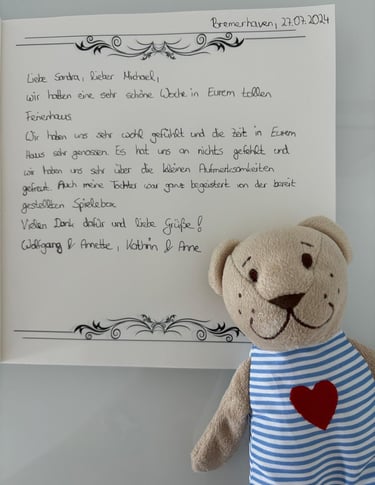 Bremerhaven, 27.07.2024
Liebe Sandra, lieber Michael,
wir hatten eine sehr schöne Woche in Eurem tollen
Ferienhaus.
Wir haben uns sehr wohl gefühlt und die Zeit in Eurem
Haus sehr genossen. Es hat uns an nichts gefehlt und
wir haben uns sehr über die kleinen Aufmerksamkeiten
gefreut. Auch meine Tochter war ganz begeistert von der bereit
gestellten Spielebox.
Vielen Dank dafür und liebe Grüße!
Wolfgang & Annette, Kathrin & Anne